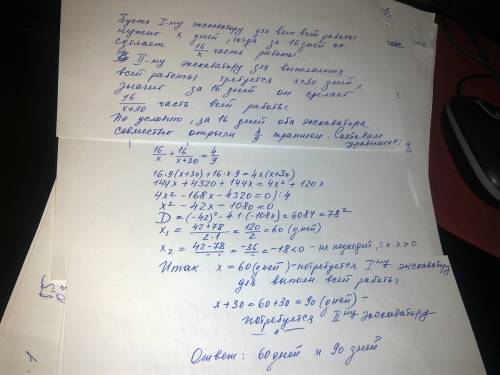 Пусть I-му экскаватору для вып. всей работы
нужно x дней, тогда за 16 дней он
сделает 16/x часть работы.
II-му экскаватору для выполнения
всей работы требуется x+30 дней,
значит за 16 дней он сделает
16/x+30 часть всей работы
По условию, за 16 дней оба экскаватора
совместно отрыли 4/9 траншеи. Составим
уравнение:
16/x + 16/x+30 = 4/9
16·9(x+30)+16·x·9=4x(x+30)
144x+4320+144x=4x²+120x
4x²-168x-4320=0):4
x²-42x-1080=0
D=(-42)²-4·1·(-1080)=6084=78²
x₁=42+78/2·1=120/2=60 (дней)
x₂=42-78/2=-36/2=-18<0 - не подходит, т.к. x>0
Итак x=60(дней)-потребуется I му экскаватору
для выполн. всей работы,
x+30=60+30=90 (дней) -
потребуется II му экскаватору
Ответ: 60 дней и 90 дней